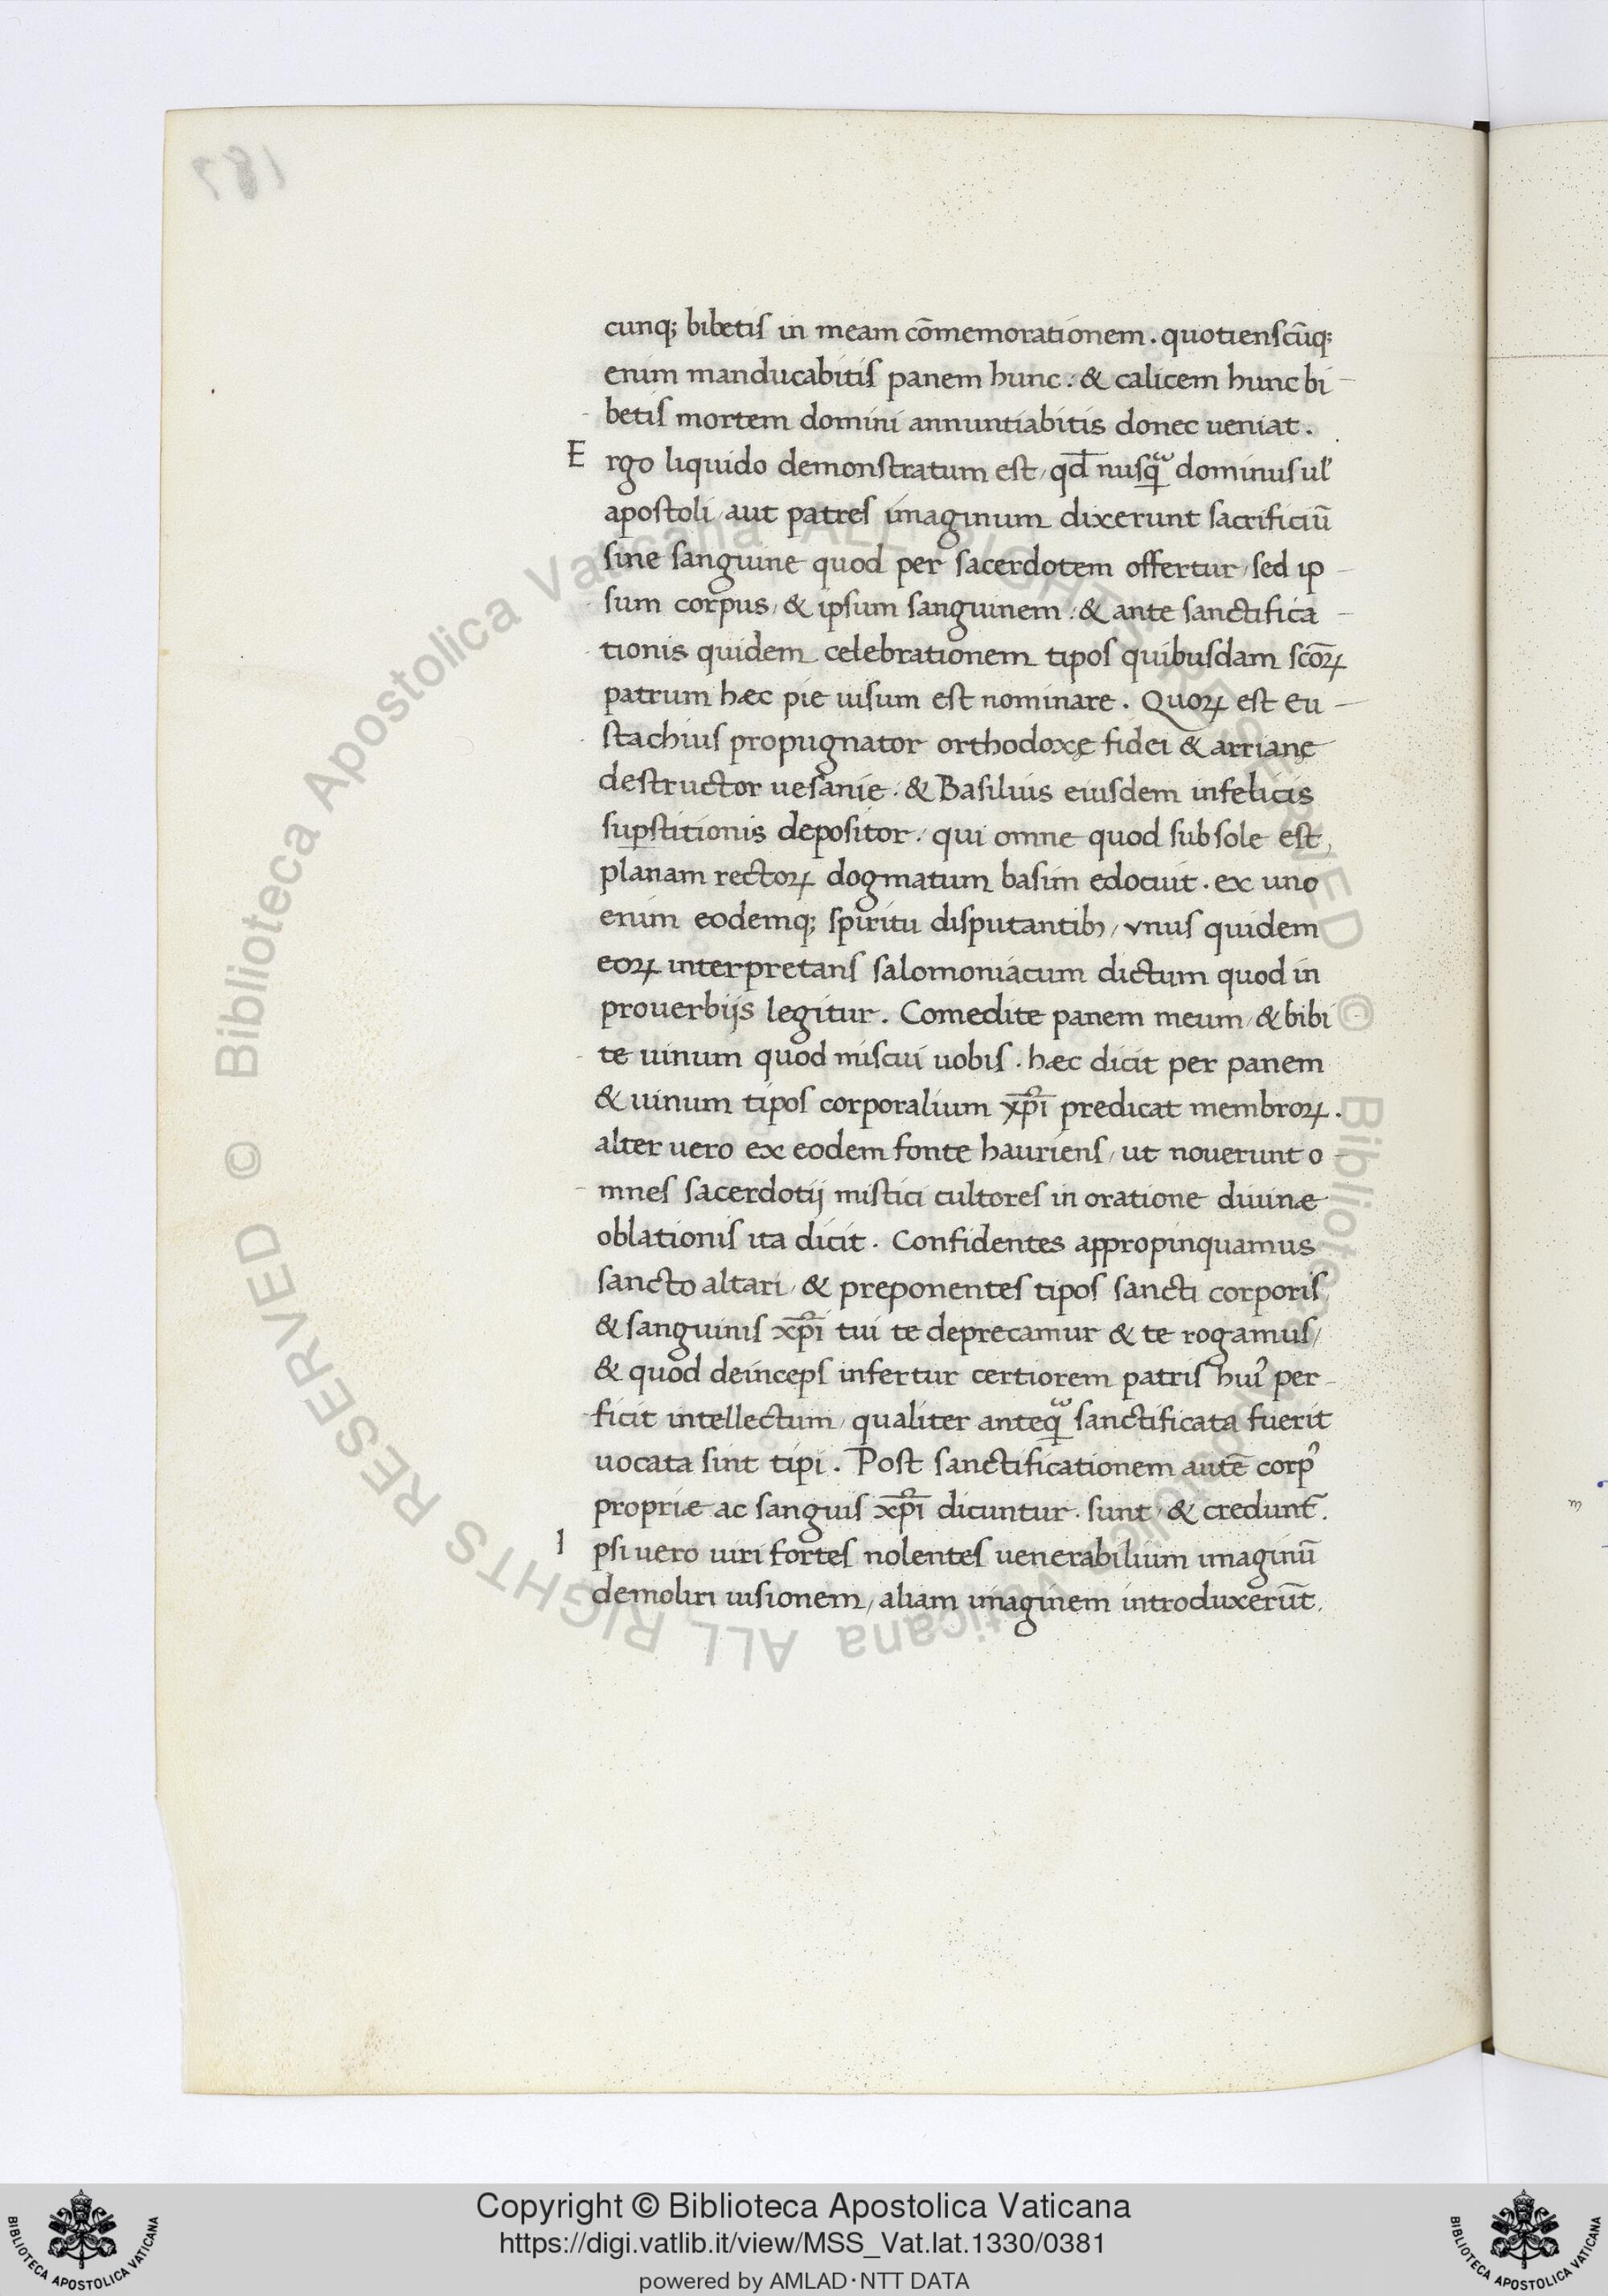 187
cunq; bibetis in meam cōmemorationem. quotienscūq;
enim manducabitis panem hunc: & calicem hunc bi-
betis mortem domini annuntiabitis donec ueniat.
Ergo liquido demonstratum est, qd̄ nusq̈ dominus ul'
apostoli, aut patres imaginum dixerunt sacrificiū
sine sanguine quod per sacerdotem offertur, sed ip-
sum corpus, & ipsum sanguinem: & ante sanctifica-
tionis quidem celebrationem tipos quibusdam scōꝝ
patrum hæc pie uisum est nominare. Quoꝝ est eu-
stachius propugnator orthodoxę fidei & arrianę
destructor uesanie: & Basilius eiusdem infelicis
suꝑstitionis depositor: qui omne quod sub sole est,
planam rectoꝝ dogmatum basim edocuit. ex uno
enim eodemq; spiritu disputantib;, vnus quidem
eoꝝ interpretans salomoniacum dictum quod in
prouerbijs legitur. Comedite panem meum, & bibi
te uinum quod miscui uobis. hæc dicit per panem
& uinum tipos corporalium xp̄i predicat membroꝝ.
alter uero ex eodem fonte hauriens, ut nouerunt o-
mnes sacerdotij mistici cultores in oratione diuinæ
oblationis ita dicit. Confidentes appropinquamus
sancto altari, & preponentes tipos sancti corporis,
& sanguinis xp̄i tui te deprecamur & te rogamus,
& quod deinceps infertur certiorem patris huiꝰ per-
ficit intellectum, qualiter anteq̈ sanctificata fuerit
uocata sint tipi. Post sanctificationem autē corpꝰ
propriæ ac sanguis xp̄i dicuntur. sunt, & credunt᷑.
Ipsi uero uiri fortes nolentes uenerabilium imaginū
demoliri uisionem, aliam imaginem introduxerūt,
Biblioteca Apostolica Vaticana ALL RIGHTS RESERVED ©
Biblioteca Apostolica Vaticana ALL RIGHTS RESERVED ©
BIBLIOTECA APOSTOLICA VATICANA
Copyright © Biblioteca Apostolica Vaticana
https://digi.vatlib.it/view/MSS_Vat.lat.1330/0381
powered by AMLAD·NTT DATA
BIBLIOTECA APOSTOLICA VATICANA